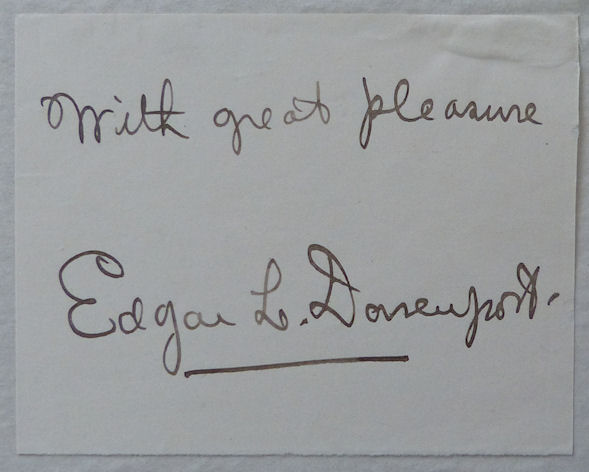 With great pleasure
Edgar L. Davenport.